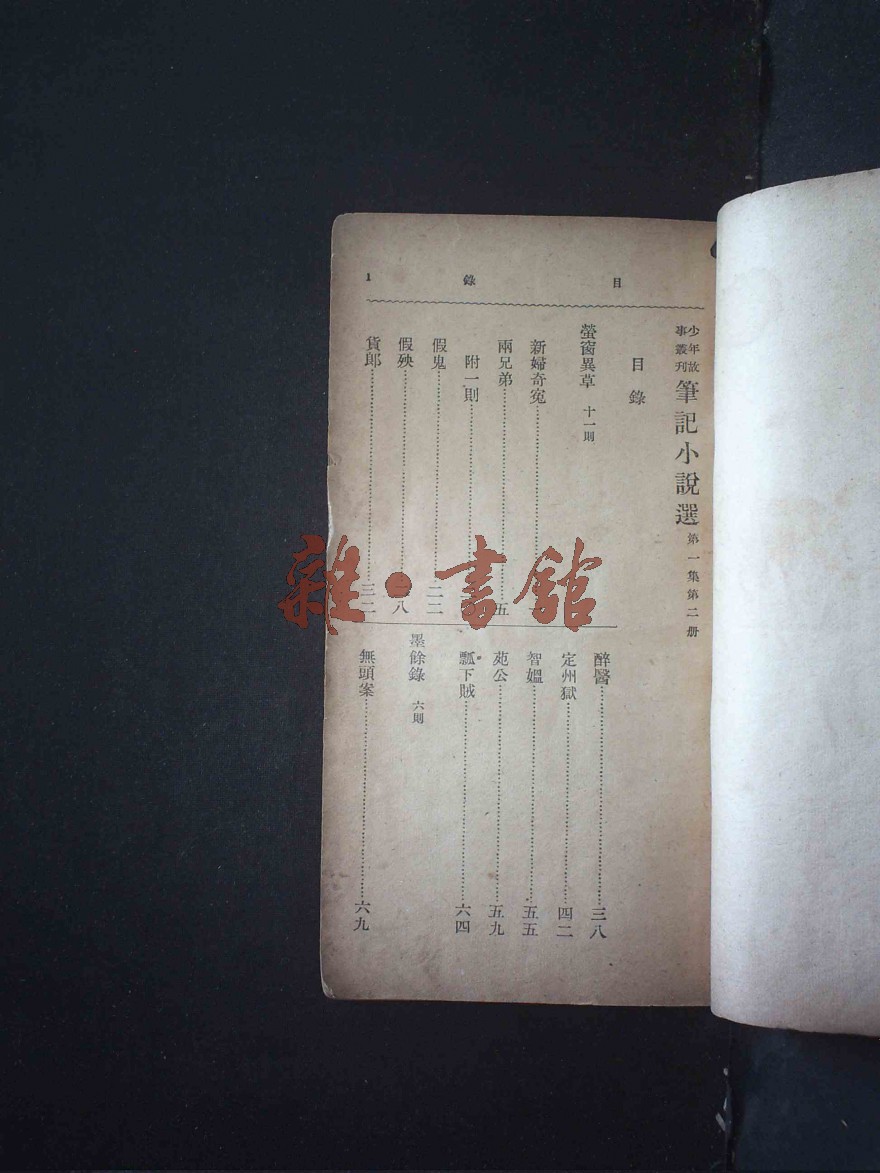 目錄 1
少年故事叢刊 筆記小說選 第一集第二册
目錄
螢窗異草 十一則
新婦奇寃
兩兄弟 五
附一則
假鬼 二二
假殃 八
貨郎 三二
醉醫 三八
定州獄 四二
智媼 五五
苑公 五九
瓢下賊 六四
墨餘錄 六則
無頭案 六九
雜·書館